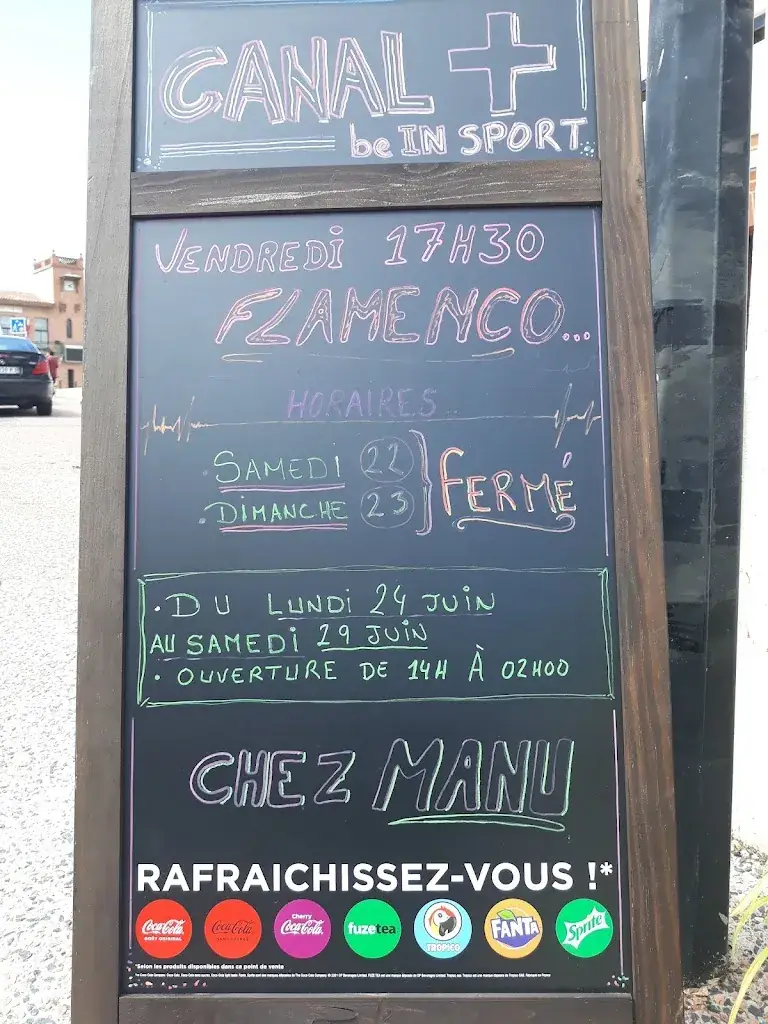 CANAL +
beIN SPORT
VENDREDI 17H30
FLAMENCO...
HORAIRES
SAMEDI 22
DIMANCHE 23
FERMÉ
• DU LUNDI 24 JUIN
AU SAMEDI 29 JUIN
• OUVERTURE DE 14H À 02H00
CHEZ MANU
RAFRAICHISSEZ-VOUS !*
Coca-Cola GOÛT ORIGINAL
Coca-Cola
Cherry Coca-Cola
fuzetea
TROPICO
FANTA
Sprite
*Selon les produits disponibles dans ce point de vente